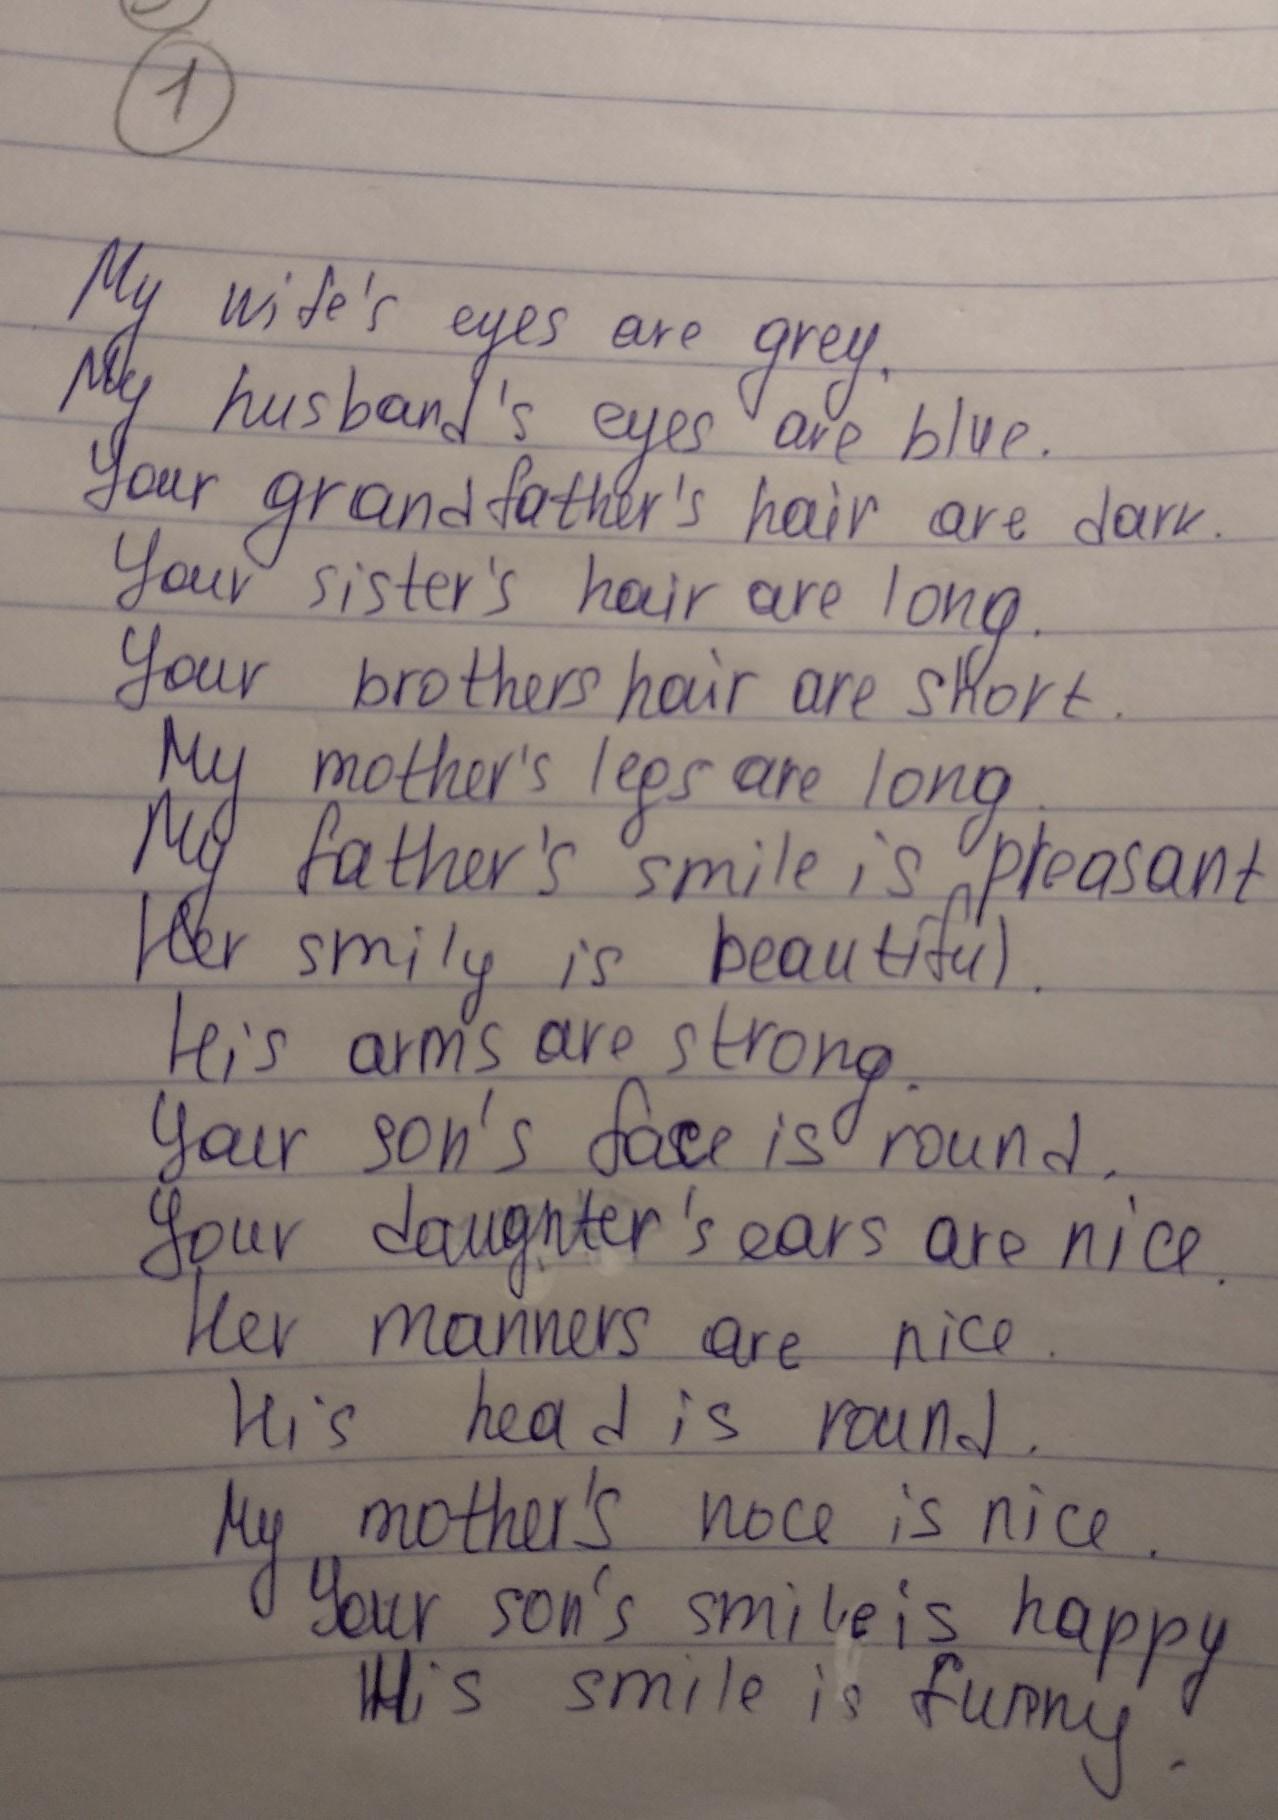 1
My wife's eyes are grey.
My husband's eyes are blue.
Your grandfather's hair are dark.
Your sister's hair are long.
Your brothers hair are short.
My mother's legs are long.
My father's smile is pleasant
Her smily is beautiful.
His arms are strong.
Your son's face is round.
Your daughter's ears are nice.
Her manners are nice.
His head is round.
My mother's noce is nice.
Your son's smile is happy
His smile is funny.